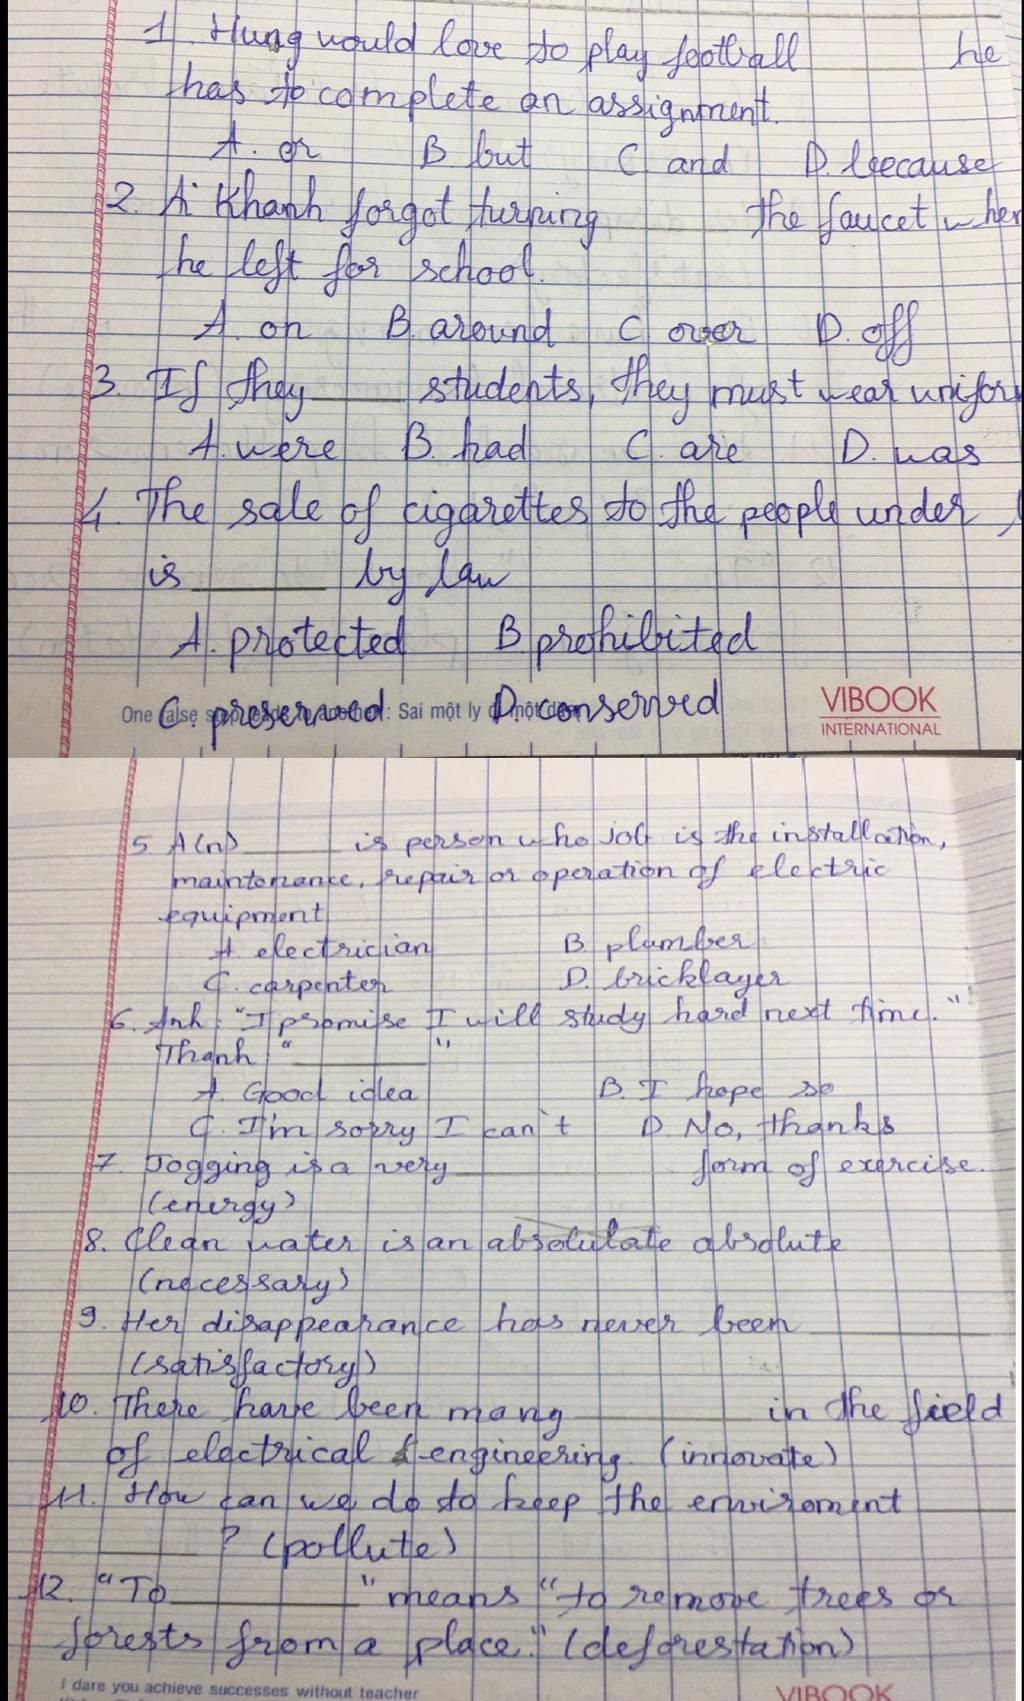 1. Hung would love to play football ______ he
has to complete an assignment.
A. or B but C and D. because
2. Ai Khanh forgot turning ______ the faucet when
he left for school.
A. on B. around C over D. off
3. If they ______ students, they must wear unifor
A. were B. had C. are D. was
4. The sale of cigarettes to the people under
is ______ by law
A. protected B prohibited
C. preserved D. conserved
One false : Sai một ly
VIBOOK
INTERNATIONAL
5 A(n) ______ is person who job is the installation,
maintenance, repair or operation of electric
equipment
A electrician B. plumber
C. carpenter D. bricklayer
6. Anh: "I promise I will study hard next time."
Thanh: "______"
A. Good idea B. I hope so
C. I'm sorry I can't D. No, thanks
7. Jogging is a very ______ form of exercise.
(energy)
8. Clean water is an absolute
(necessary)
9. Her disappearance has never been ______
(satisfactory)
10. There have been many ______ in the field
of electrical engineering (innovate)
11. How can we do to keep the enviroment
______? (pollute)
12. "To ______" means "to remove trees or
forests from a place." (deforestation)
I dare you achieve successes without teacher
VIBOOK